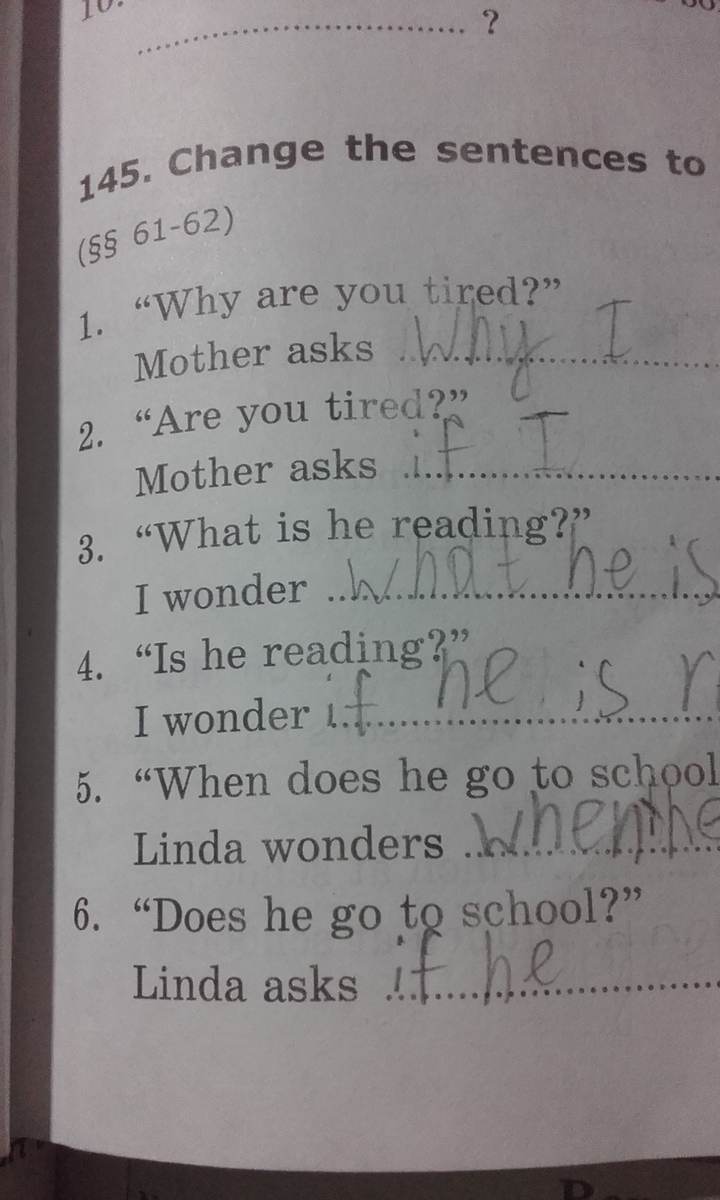 10.
.................................. ?
145. Change the sentences to
(§§ 61-62)
1. “Why are you tired?”
Mother asks Why I
2. “Are you tired?”
Mother asks if I
3. “What is he reading?”
I wonder what he is
4. “Is he reading?”
I wonder if he is r
5. “When does he go to school
Linda wonders when he
6. “Does he go to school?”
Linda asks if he